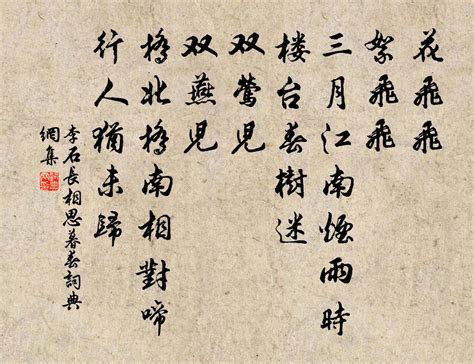 花飛飛
絮飛飛
三月江南煙雨時
楼台春樹迷
双鶯兒
双燕兒
橋北橋南相對啼
行人猶未歸
李石長相思暮春詞典
網集